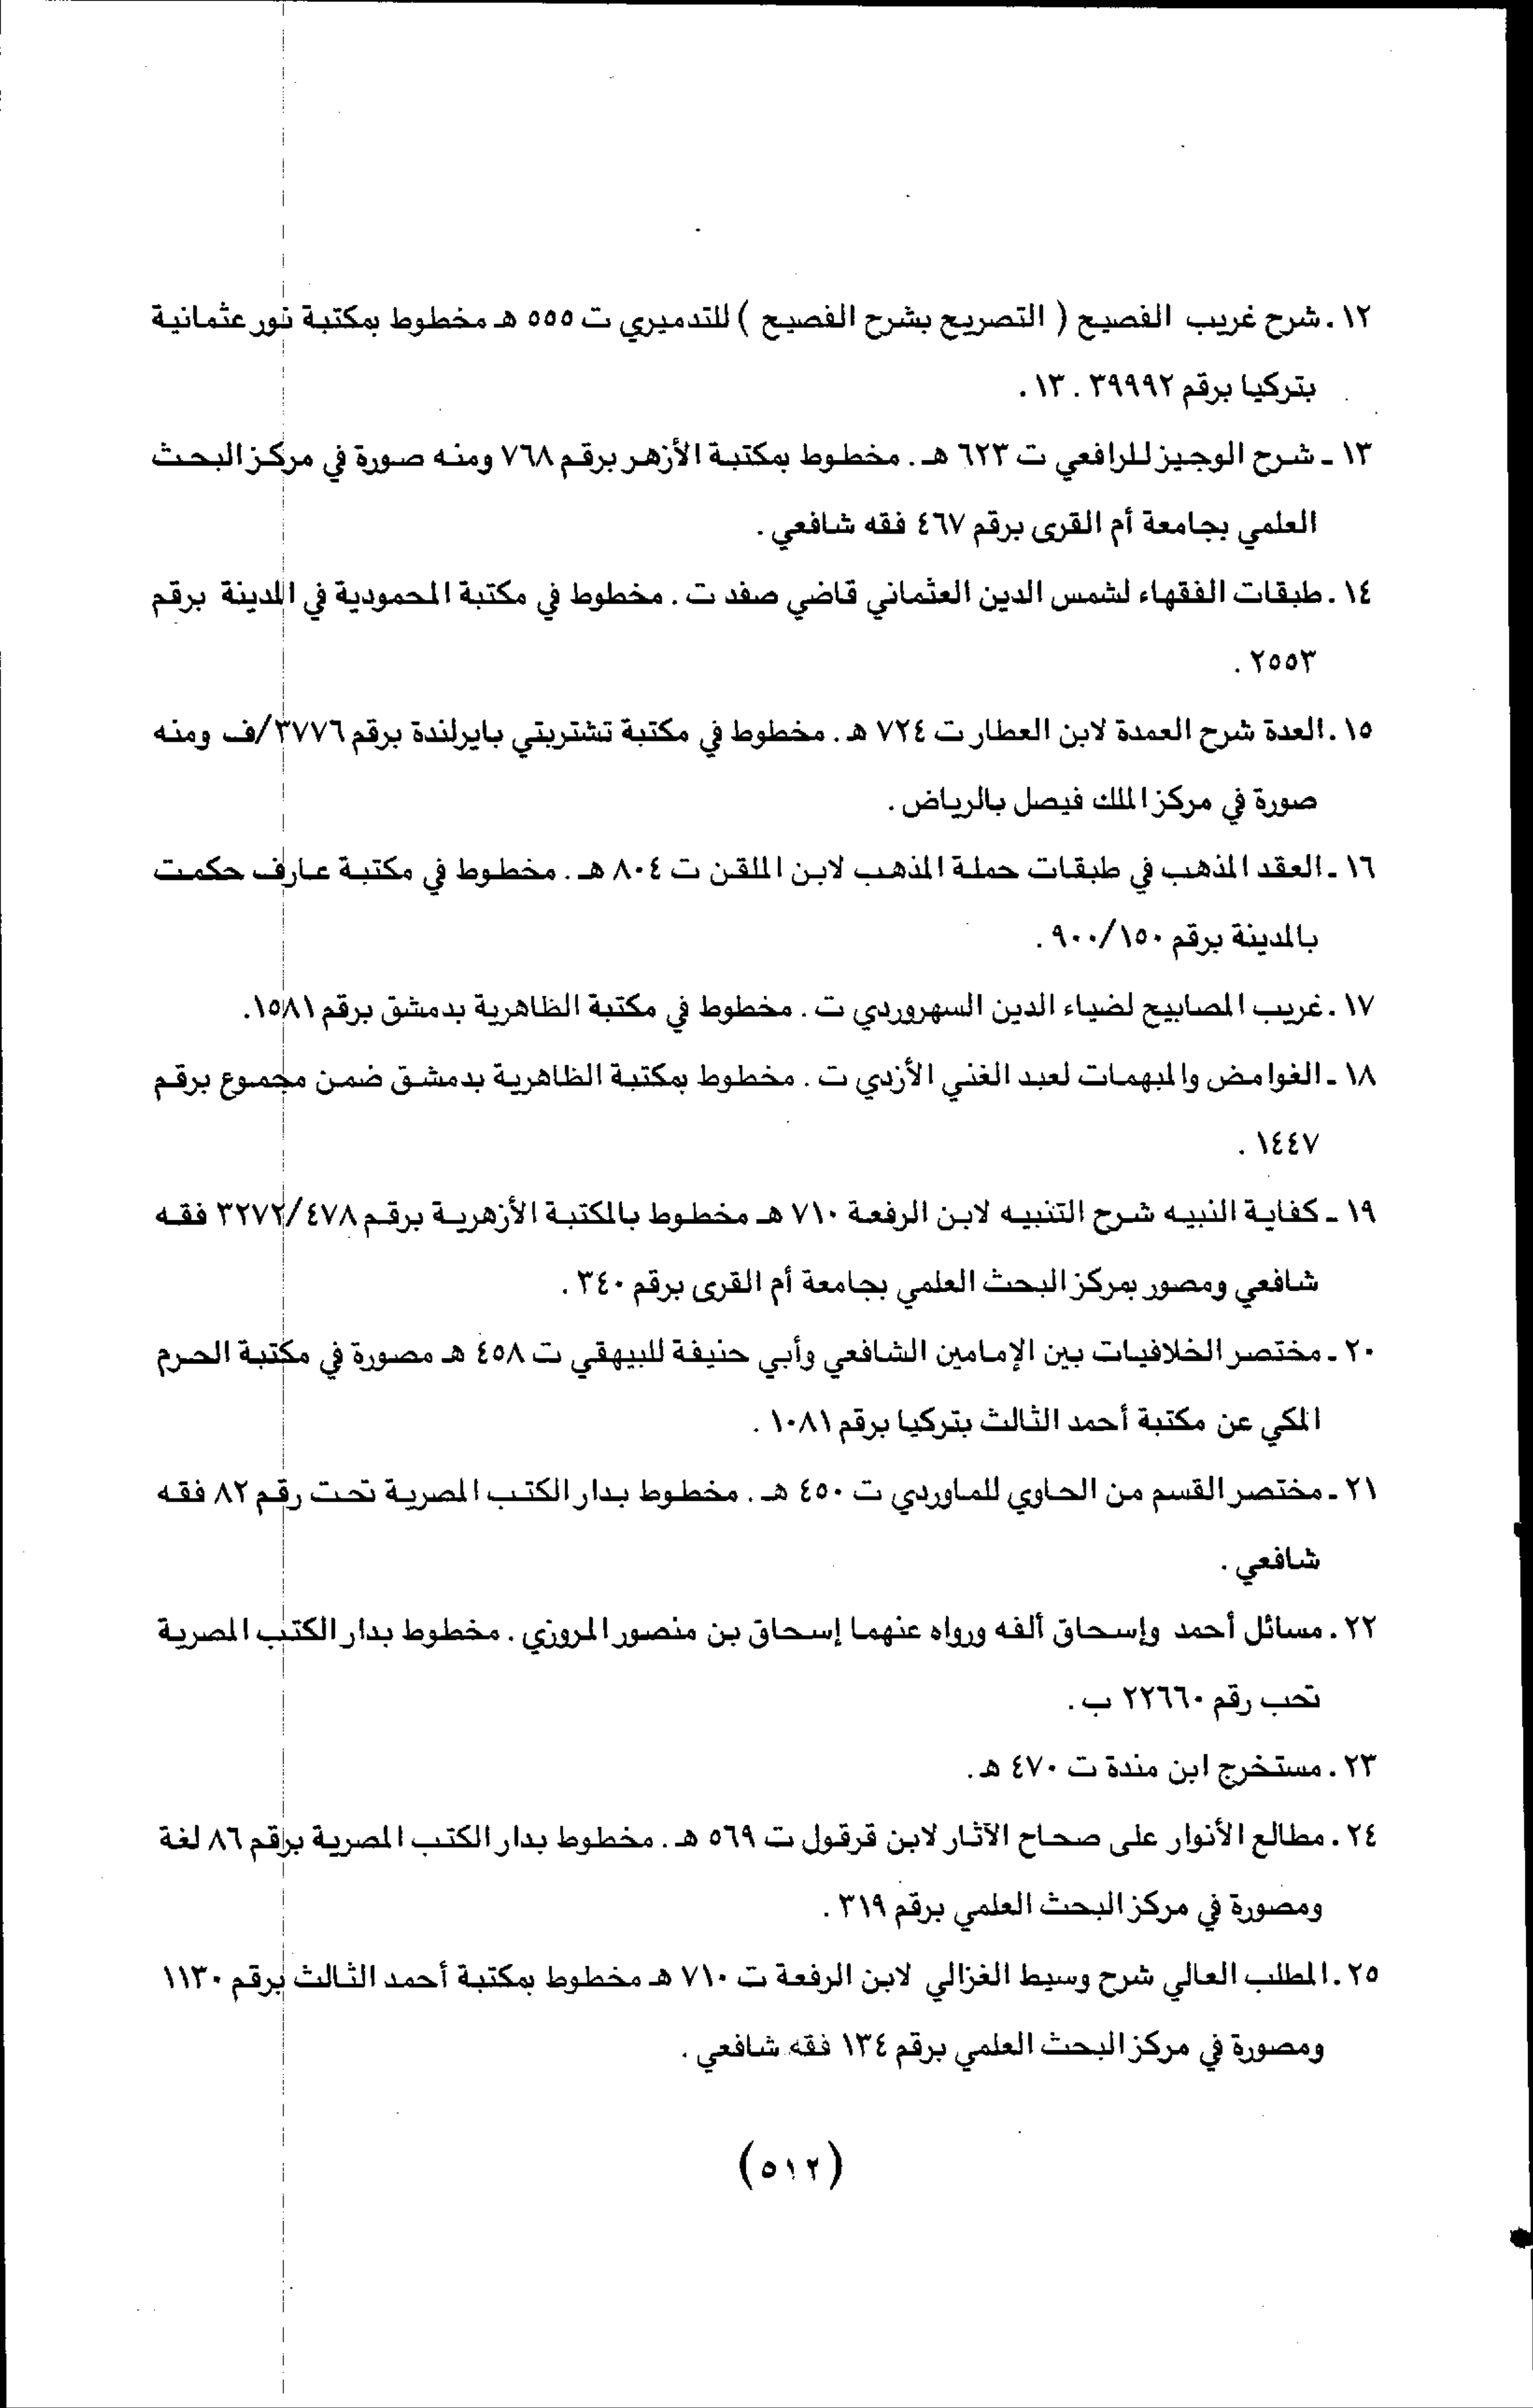 ١٢ . شرح غريب الفصيح ( التصريح بشرح الفصيح ) للتدميري ت ٥٥٥ هـ مخطوط بمكتبة نور عثمانية
بتركيا برقم ٣٩٩٩٢ . ١٣ .
١٣ ـ شرح الوجيز للرافعي ت ٦٢٣ هـ . مخطوط بمكتبة الأزهر برقم ٧٦٨ ومنه صورة في مركز البحث
العلمي بجامعة أم القرى برقم ٤٦٧ فقه شافعي .
١٤ . طبقات الفقهاء لشمس الدين العثماني قاضي صفد ت . مخطوط في مكتبة المحمودية في المدينة برقم
٢٥٥٣ .
١٥ . العدة شرح العمدة لابن العطار ت ٧٢٤ هـ . مخطوط في مكتبة تشتربتي بايرلندة برقم ٣٧٧٦/ف ومنه
صورة في مركز الملك فيصل بالرياض .
١٦ ـ العقد المذهب في طبقات حملة المذهب لابن الملقن ت ٨٠٤ هـ . مخطوط في مكتبة عارف حكمت
بالمدينة برقم ٩٠٠/١٥٠ .
١٧ . غريب المصابيح لضياء الدين السهروردي ت . مخطوط في مكتبة الظاهرية بدمشق برقم ١٥٨١.
١٨ ـ الغوامض والمبهمات لعبد الغني الأزدي ت . مخطوط بمكتبة الظاهرية بدمشق ضمن مجموع برقم
١٤٤٧ .
١٩ ـ كفاية النبيه شرح التنبيه لابن الرفعة ٧١٠ هـ مخطوط بالمكتبة الأزهرية برقم ٣٢٧٢/٤٧٨ فقه
شافعي ومصور بمركز البحث العلمي بجامعة أم القرى برقم ٣٤٠ .
٢٠ ـ مختصر الخلافيات بين الإمامين الشافعي وأبي حنيفة للبيهقي ت ٤٥٨ هـ مصورة في مكتبة الحرم
المكي عن مكتبة أحمد الثالث بتركيا برقم ١٠٨١ .
٢١ ـ مختصر القسم من الحاوي للماوردي ت ٤٥٠ هـ . مخطوط بدار الكتب المصرية تحت رقم ٨٢ فقه
شافعي .
٢٢ . مسائل أحمد وإسحاق ألفه ورواه عنهما إسحاق بن منصور المروزي . مخطوط بدار الكتب المصرية
تحب رقم ٢٢٦٦٠ ب .
٢٣ . مستخرج ابن مندة ت ٤٧٠ هـ .
٢٤ . مطالع الأنوار على صحاح الآثار لابن قرقول ت ٥٦٩ هـ . مخطوط بدار الكتب المصرية برقم ٨٦ لغة
ومصورة في مركز البحث العلمي برقم ٣١٩ .
٢٥ . المطلب العالي شرح وسيط الغزالي لابن الرفعة ت ٧١٠ هـ مخطوط بمكتبة أحمد الثالث برقم ١١٣٠
ومصورة في مركز البحث العلمي برقم ١٣٤ فقه شافعي .
(٥١٢)